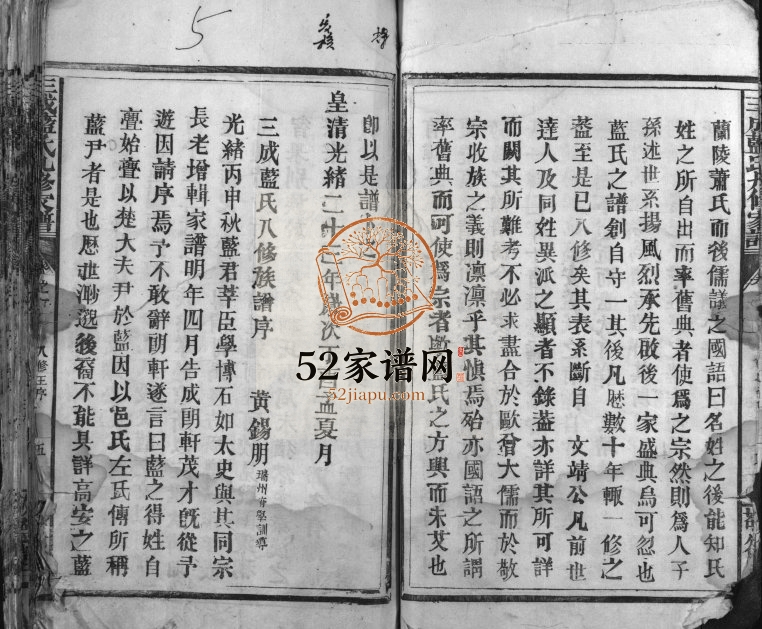 蘭陵蕭氏而後儒議之國語曰名姓之後能知氏
姓之所自出而率舊典者使爲之宗然則爲人子
孫述世系揚風烈承先啟後一家盛典烏可忽也
藍氏之譜創自守一其後凡歷數十年輒一修之
葢至是已八修矣其表系斷自 文靖公凡前世
達人及同姓異派之顯者不錄葢亦詳其所可詳
而闕其所難考不必求盡合於歐曾大儒而於敬
宗收族之義則凜凜乎其慎焉殆亦國語之所謂
率舊典而可使爲宗者歟藍氏之方興而未艾也
卽以是譜
皇清光緒二十 年歲次丁酉孟夏月
三成藍氏八修族譜序
黃錫朋 瑞州府學訓導
光緒丙申秋藍君莘臣學博石如太史與其同宗
長老增輯家譜明年四月告成朗軒茂才旣從予
遊因請序焉予不敢辭朗軒遂言曰藍之得姓自
亹始亹以楚大夫尹於藍因以邑氏左氏傳所稱
藍尹者是也歷世渺邈後裔不能具詳高安之藍
三成藍氏八修家譜
八修王序
五
5
52家谱网
52jiapu.com